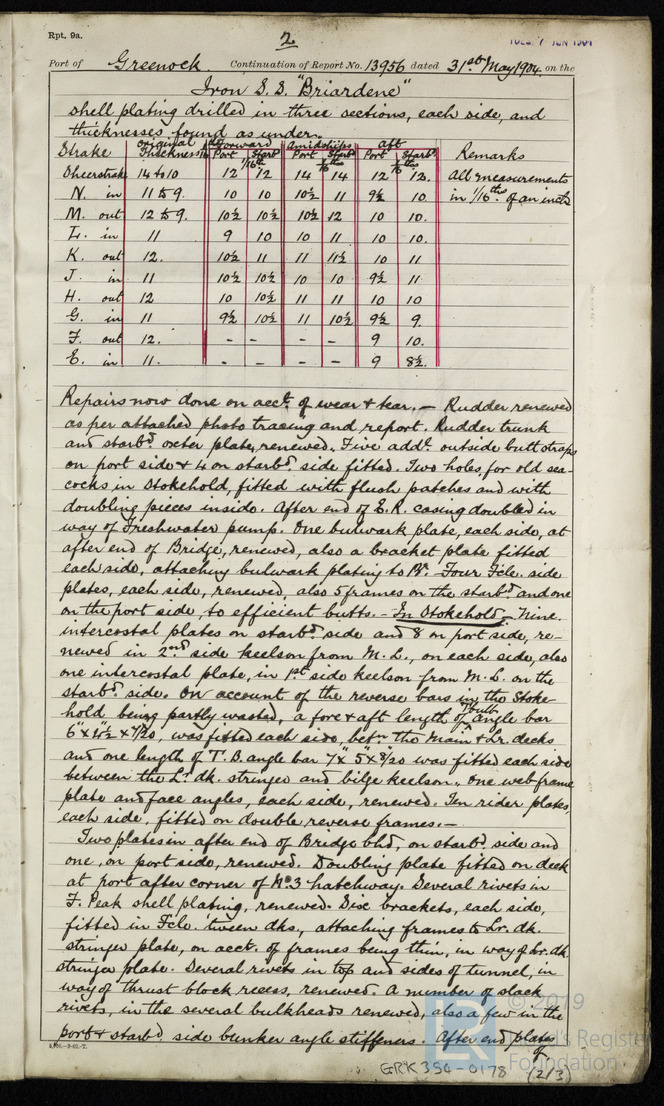 Rpt. 9a.
2
TUES. 7 JUN 1904
Port of Greenock Continuation of Report No. 13956 dated 31st May 1904 on the
Iron S.S. "Briardene"
shell plating drilled in three sections, each side, and
thicknesses found as under.
Strake original Thickness 16 Forward Port Starbd 1/16th amidships Port Starbd 1/16ths aft Port Starbd 1/16ths Remarks
Sheerstrake 14 to 10 12 12 14 14 12 12. All measurements
N. in 11 to 9. 10 10 10½ 11 9½ 10 in 1/16ths of an inch
M. out 12 to 9. 10½ 10½ 10½ 12 10 10.
L. in 11 9 10 10 11 10 10.
K. out 12. 10½ 11 11 11½ 10 11
J. in 11 10½ 10½ 10 10 9½ 11
H. out 12 10 10½ 11 11 10 10
G. in 11 9½ 10½ 11 10½ 9½ 9.
F. out 12. - - - - 9 10.
E. in 11. - - - - 9 8½.
Repairs now done on acct. of wear & tear. — Rudder renewed
as per attached photo tracing and report. Rudder trunk
and starbd. oxter plate, renewed. Five addl. outside butt straps
on port side & 4 on starbd. side fitted. Two holes, for old sea-
cocks in Stokehold, fitted with flush patches and with
doubling pieces inside. After end of E.R. casing doubled in
way of Freshwater pump. One bulwark plate, each side, at
after end of Bridge, renewed, also a bracket plate fitted
each side, attaching bulwark plating to Br. Four Fcle. side
plates, each side, renewed, also 5 frames on the starbd. and one
on the port side, to efficient butts. - In Stokehold, Nine.
intercostal plates on starbd. side and 8 on port side, re-
newed in 2nd side keelson from M.L., on each side, also
one intercostal plate, in 1st side keelson from M.L. on the
starbd. side. On account of the reverse bars in the Stoke-
hold being partly wasted, a fore & aft length of bulb angle bar
was fitted each side, betn. the Main & Lr. decks
and one length of T.B. angle bar 7" x 5" x 8/20 was fitted each side
between the Lr. dk. stringer and bilge keelson. One web frame
plate and face angles, each side, renewed. Ten rider plates,
each side, fitted on double reverse frames. —
Two plates in after end of Bridge bhd, on starbd. side and
one, on port side, renewed. Doubling plate fitted on deck
at port after corner of No 3 hatchway. Several rivets in
F. Peak shell plating, renewed. Six brackets, each side,
fitted in Fcle. 'tween dks, attaching frames to Lr. dk.
stringer plate, on acct. of frames being thin, in way of Lr. dk.
stringer plate. Several rivets in top and sides of tunnel, in
way of thrust block recess, renewed. A number of slack
rivets, in the several bulkheads renewed, also a few in the
port & starbd. side bunker angle stiffeners. After end plates
of
GRK 354-0178 (2/3)
© 2019
Lloyd's Register
Foundation